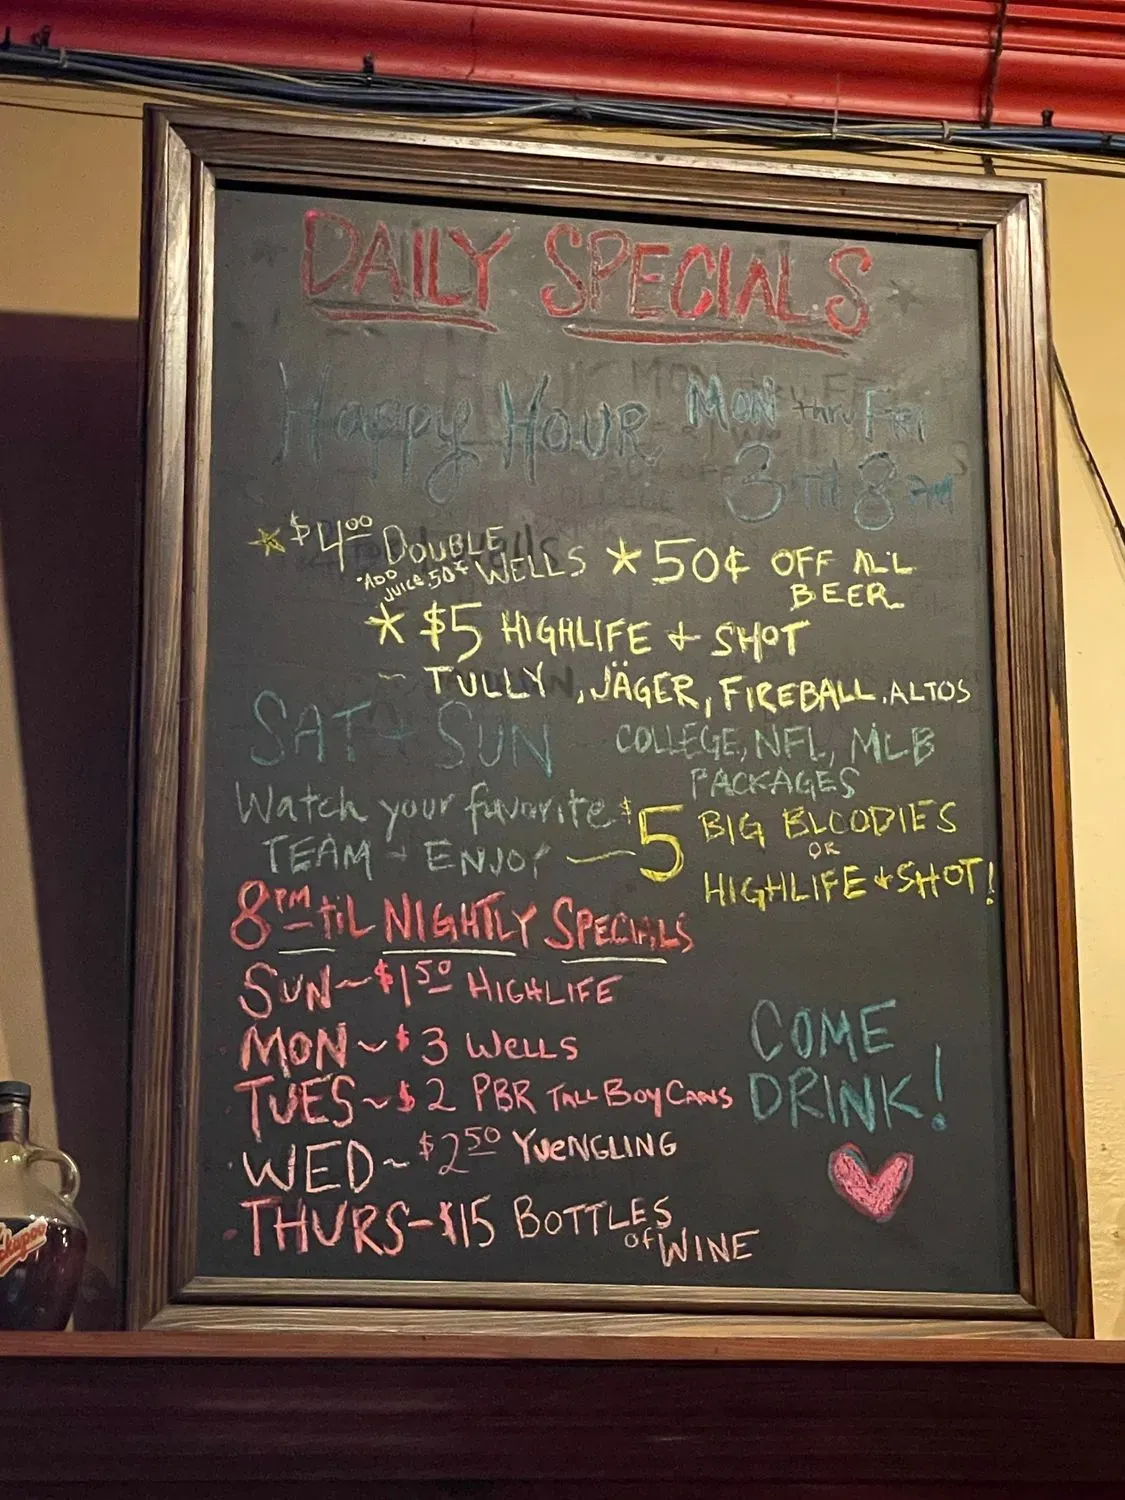 DAILY SPECIALS
Happy Hour MON thru FRI
3 til 8 PM
$4.00 DOUBLE WELLS
*ADD JUICE .50¢
* 50¢ OFF ALL BEER
* $5 HIGHLIFE + SHOT
~ TULLY, JÄGER, FIREBALL, ALTOS
SAT + SUN COLLEGE, NFL, MLB
PACKAGES
Watch your favorite
TEAM - ENJOY — $5 BIG BLOODIES
OR
HIGHLIFE + SHOT!
8PM til NIGHTLY SPECIALS
SUN ~ $1.50 HIGHLIFE
MON ~ $3 WELLS
TUES ~ $2 PBR TALL BOY CANS
WED ~ $2.50 YUENGLING
THURS - $15 BOTTLES
of WINE
COME
DRINK!